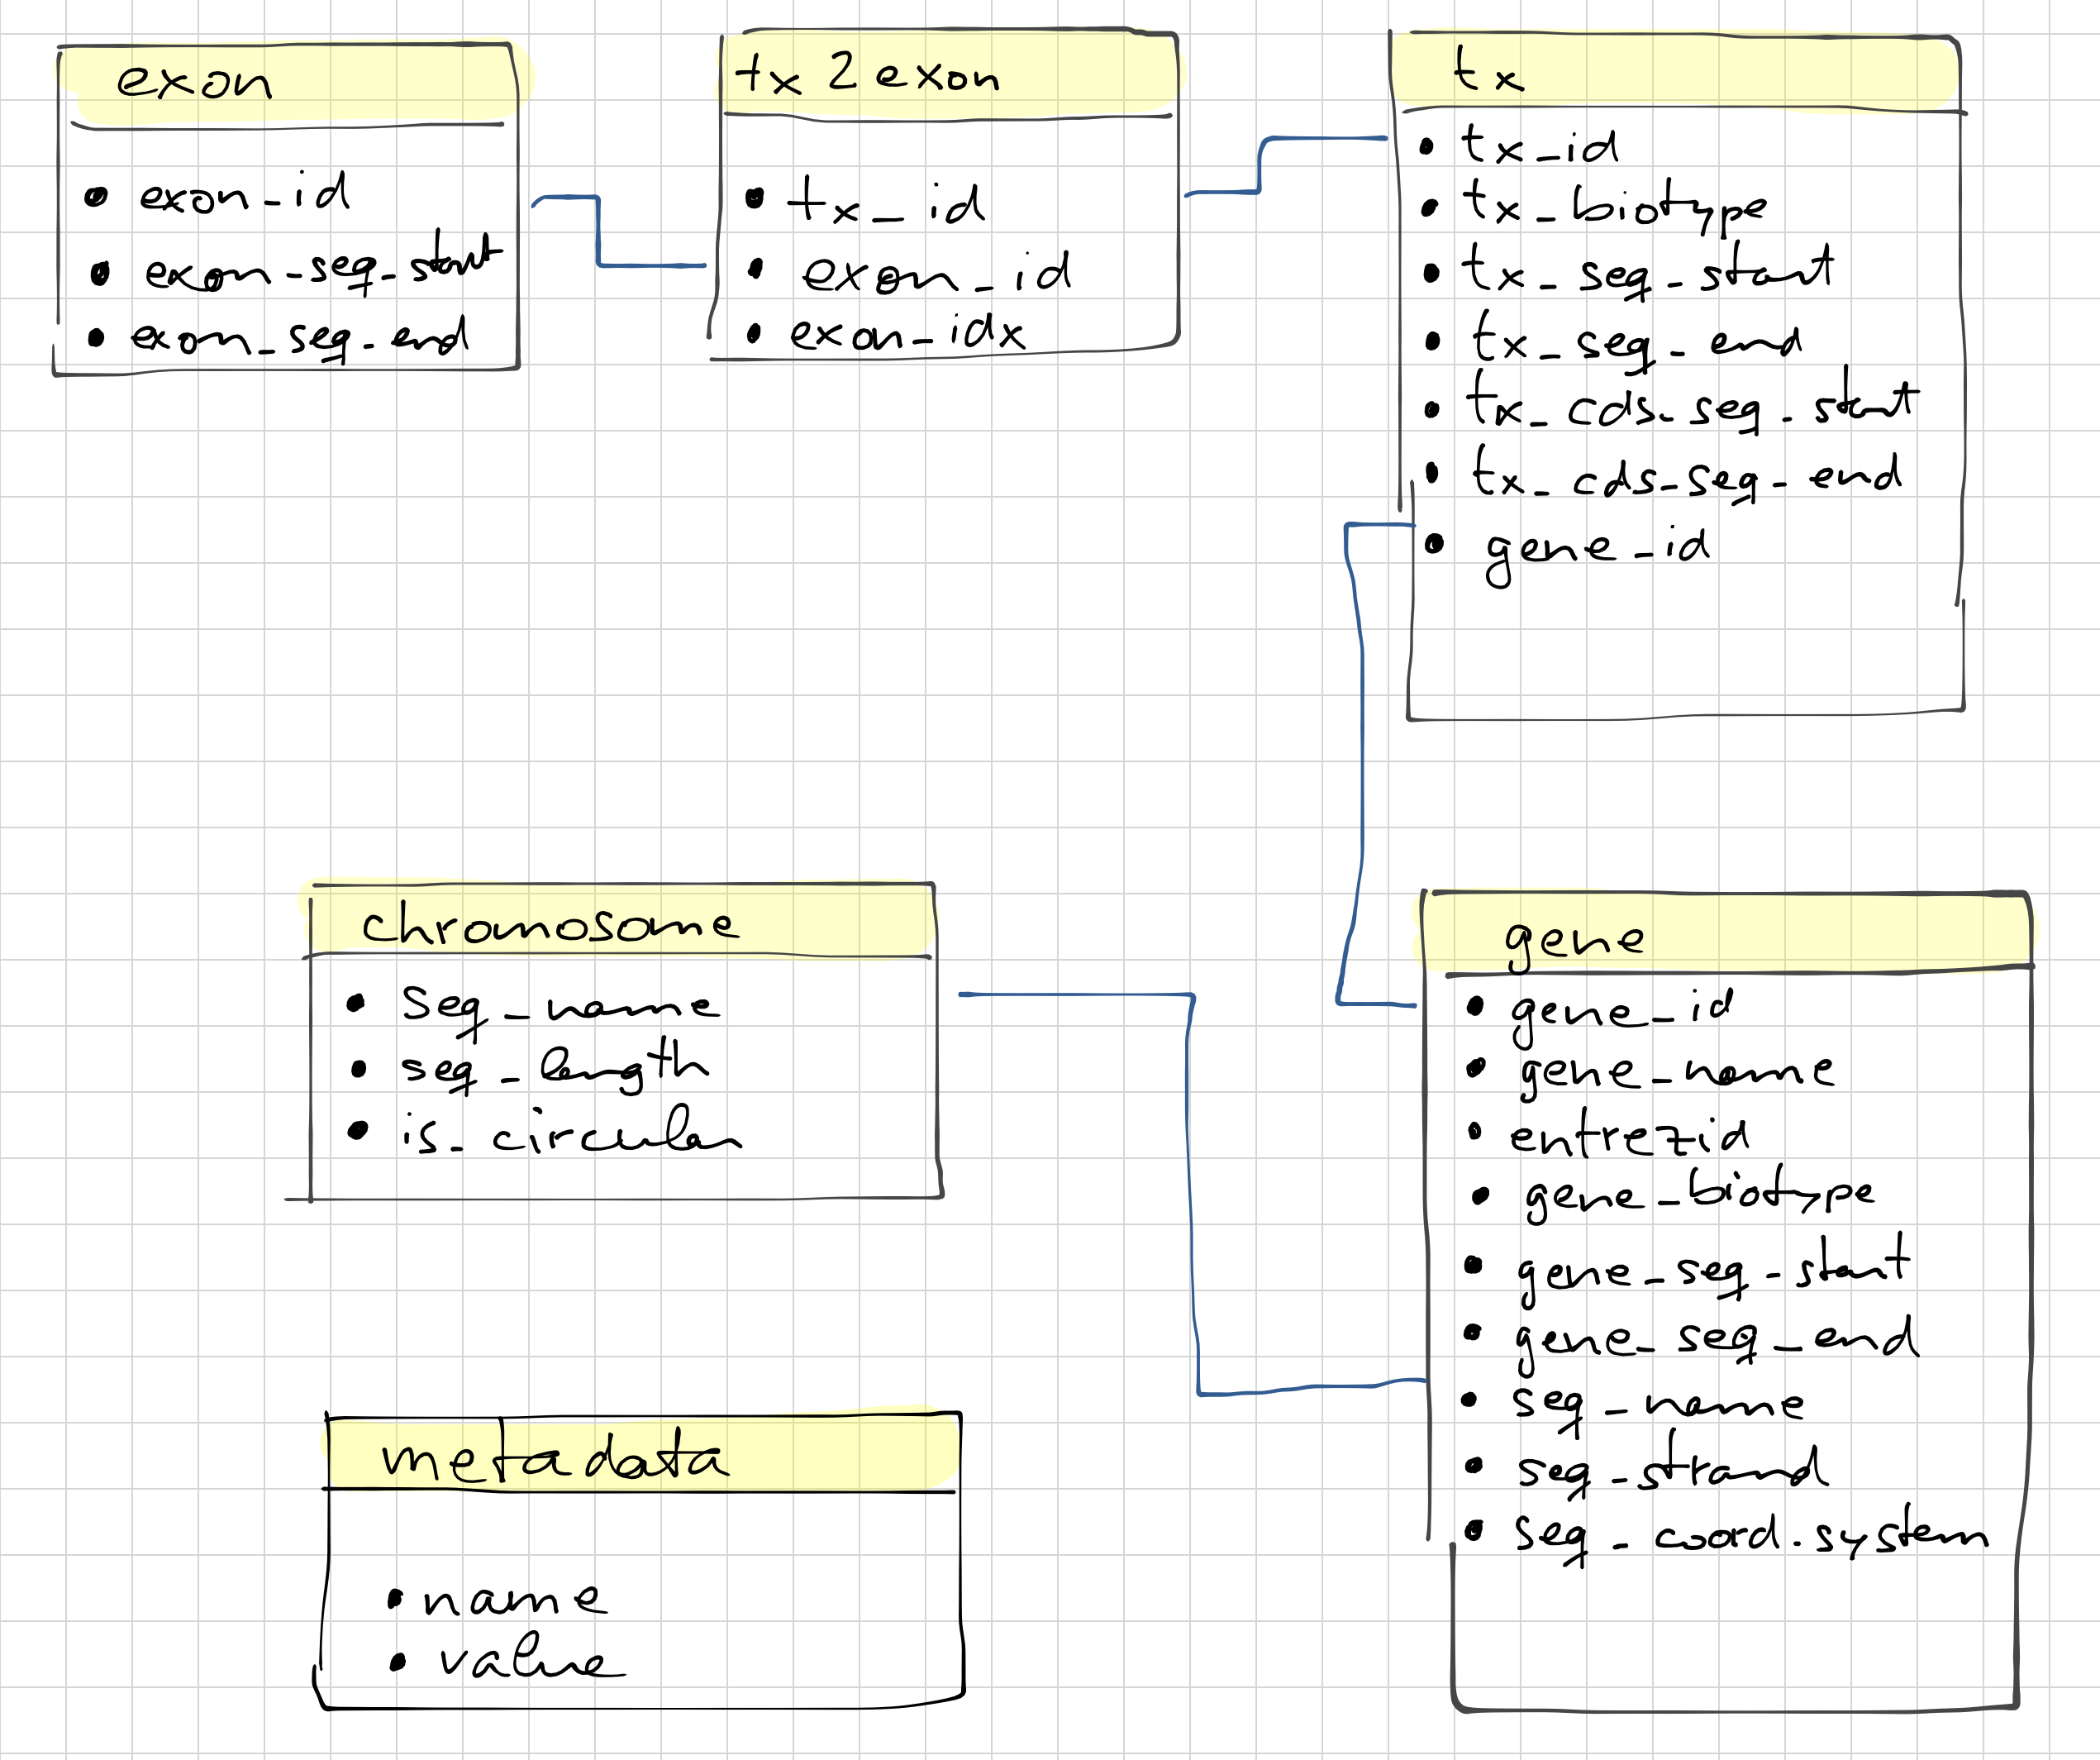 exon
exon_id
exon_seq_start
exon_seq_end
tx2exon
tx_id
exon_id
exon_idx
tx
tx_id
tx_biotype
tx_seq_start
tx_seq_end
tx_cds_seq_start
tx_cds_seq_end
gene_id
chromosome
seq_name
seq_length
is_circular
gene
gene_id
gene_name
entrezid
gene_biotype
gene_seq_start
gene_seq_end
seq_name
seq_strand
seq_coord_system
metadata
name
value